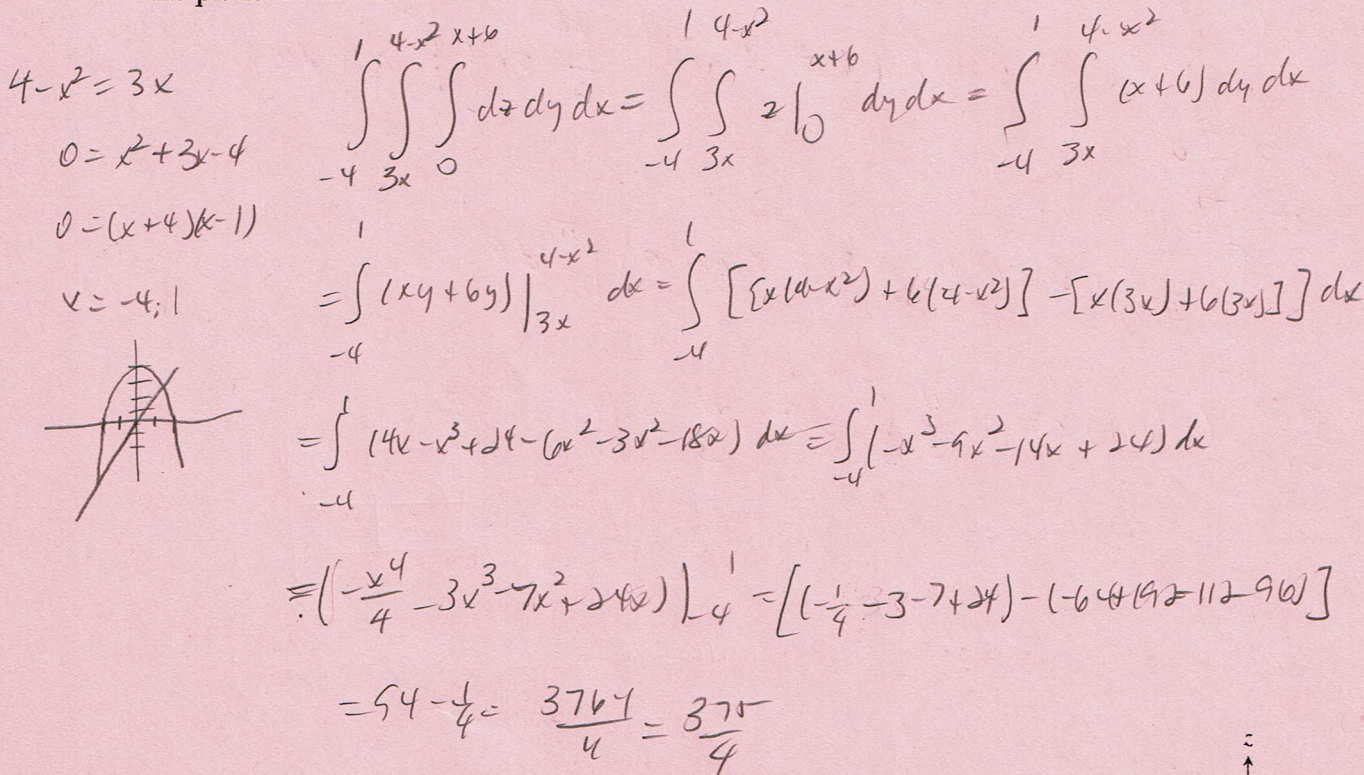 4-x² = 3x
0 = x²+3x-4
0 = (x+4)(x-1)
x = -4, 1
∫_{-4}^{1} ∫_{3x}^{4-x²} ∫_{0}^{x+6} dz dy dx = ∫_{-4}^{1} ∫_{3x}^{4-x²} z|_{0}^{x+6} dy dx = ∫_{-4}^{1} ∫_{3x}^{4-x²} (x+6) dy dx
= ∫_{-4}^{1} (xy+6y)|_{3x}^{4-x²} dx = ∫_{-4}^{1} [[x(4-x²)+6(4-x²)] - [x(3x)+6(3x)]] dx
= ∫_{-4}^{1} (4x-x³+24-6x²-3x²-18x) dx = ∫_{-4}^{1} (-x³-9x²-14x+24) dx
= (-x⁴/4 - 3x³ - 7x² + 24x)|_{-4}^{1} = [(-1/4 - 3 - 7 + 24) - (-64+192-112-96)]
= 94 - 1/4 = 376-1/4 = 375/4
z